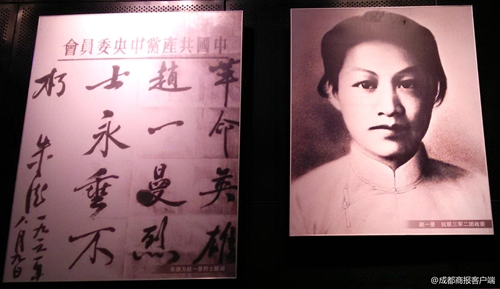 中國共產黨中央委員會
革命英雄
趙一曼烈
士永垂不
朽
朱德
一九六二年
趙一曼 抗聯三軍二團政委
@成都商报客户端